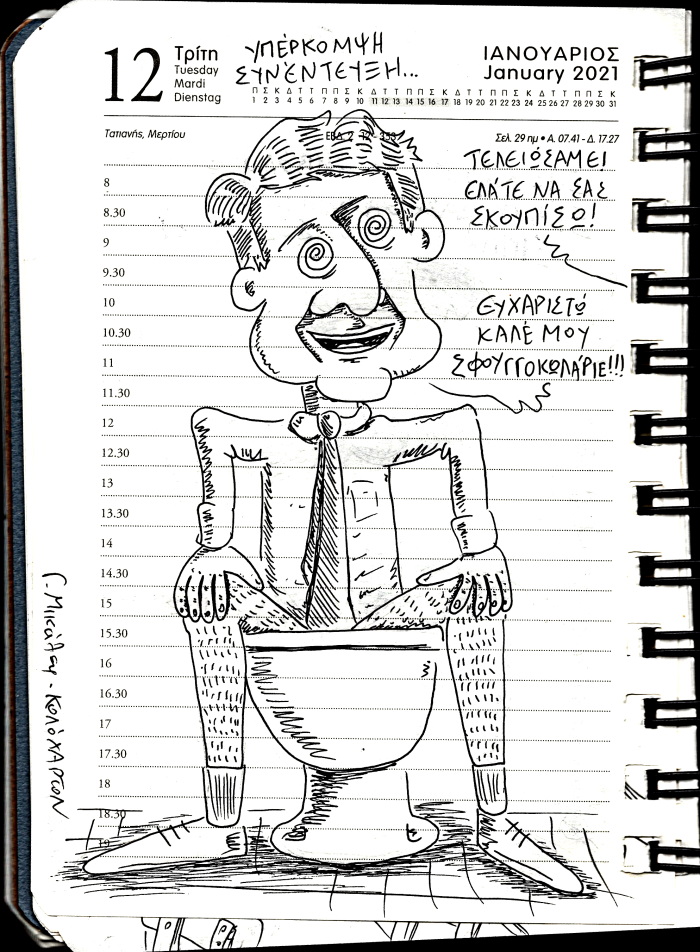 12
Τρίτη
Tuesday
Mardi
Dienstag
ΥΠΈΡΚΟΜΨΗ
ΣΥΝΈΝΤΕΥΞΗ...
ΙΑΝΟΥΑΡΙΟΣ
January 2021
Π Σ Κ Δ Τ Τ Π Π Σ Κ Δ Τ Τ Π Π Σ Κ Δ Τ Τ Π Π Σ Κ Δ Τ Τ Π Π Σ Κ
1 2 3 4 5 6 7 8 9 10 11 12 13 14 15 16 17 18 19 20 21 22 23 24 25 26 27 28 29 30 31
Τατιανής, Μερτίου
ΕΒΔ. 2 12 - 353
Σελ. 29 πμ • Α. 07.41 - Δ. 17.27
ΤΕΛΕΙΏΣΑΜΕ!
ΕΛΆΤΕ ΝΑ ΣΑΣ
ΣΚΟΥΠΊΣΩ!
ΕΥΧΑΡΙΣΤΏ
ΚΑΛΈ ΜΟΥ
ΣΦΟΥΓΓΟΚΩΛΆΡΙΕ!!!
8
8.30
9
9.30
10
10.30
11
11.30
12
12.30
13
13.30
14
14.30
15
15.30
16
16.30
17
17.30
18
18.30
19
Γ. Μικάλεφ - Κωλόχαρτον